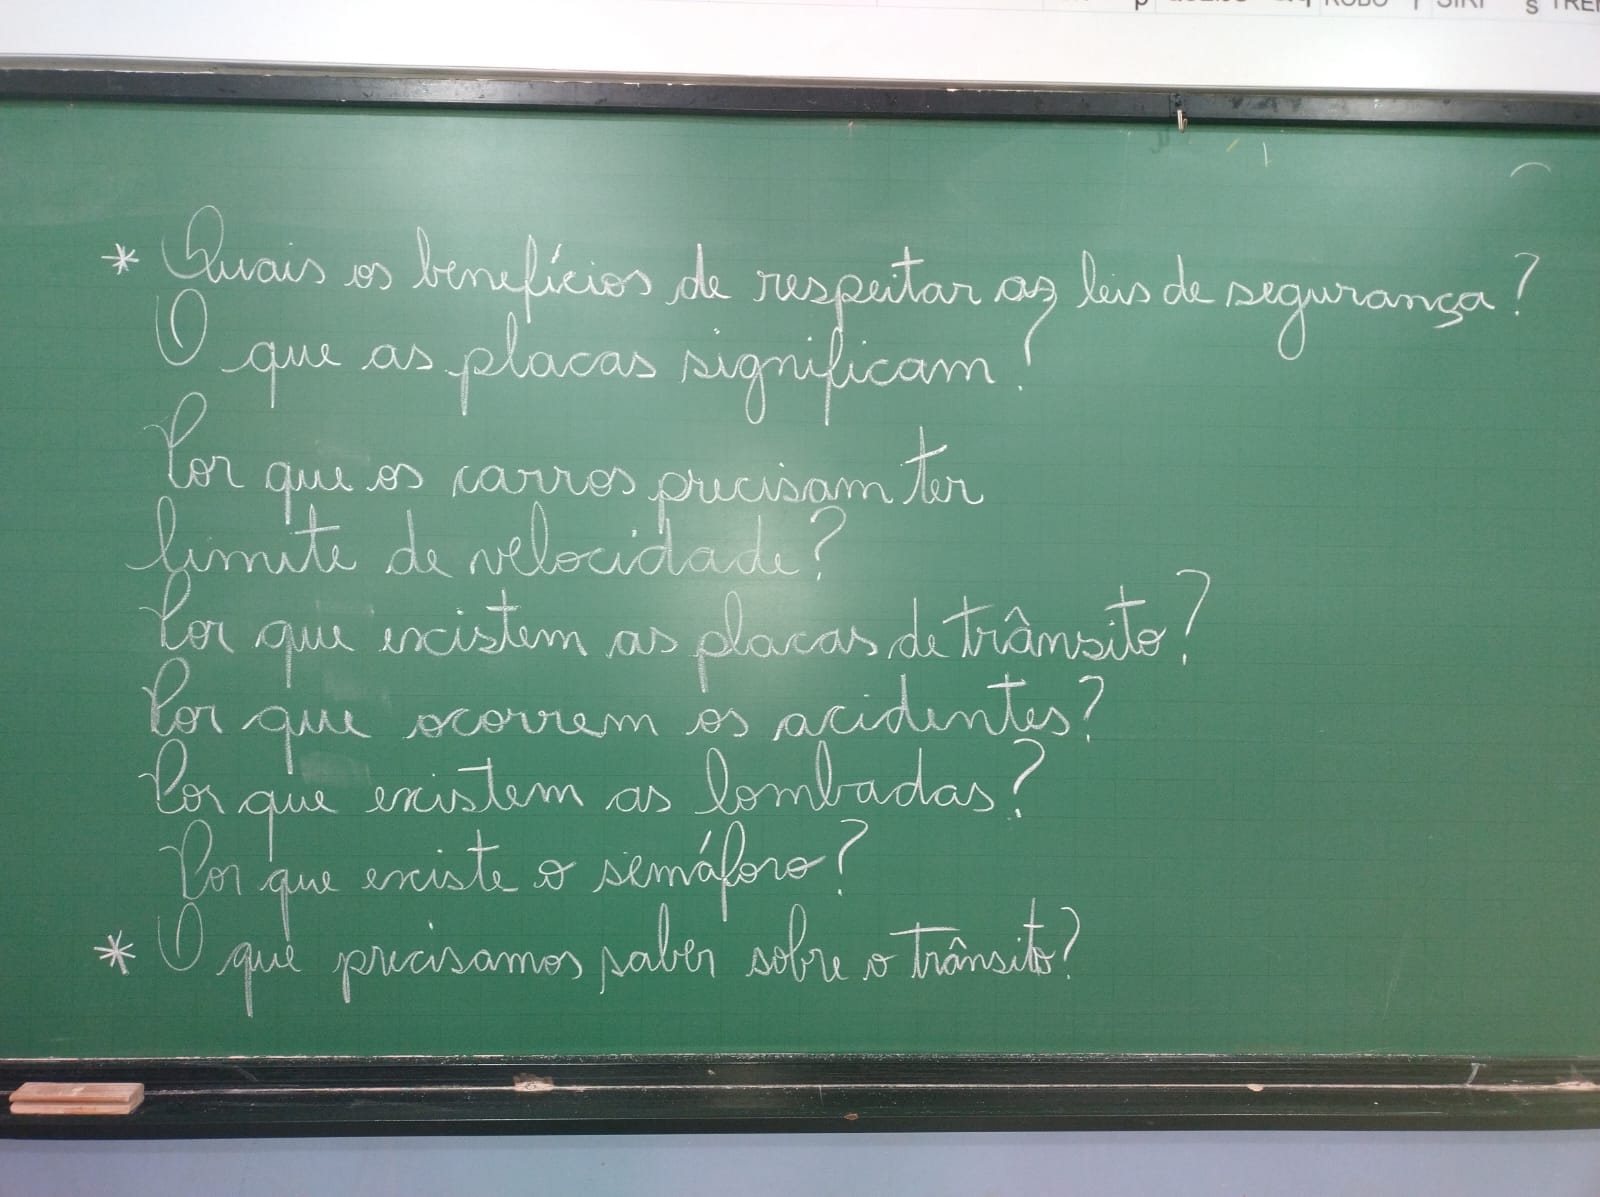 * Quais os benefícios de respeitar as leis de segurança?
O que as placas significam?
Por que os carros precisam ter
limite de velocidade?
Por que existem as placas de trânsito?
Por que ocorrem os acidentes?
Por que existem as lombadas?
Por que existe o semáforo?
* O que precisamos saber sobre o trânsito?